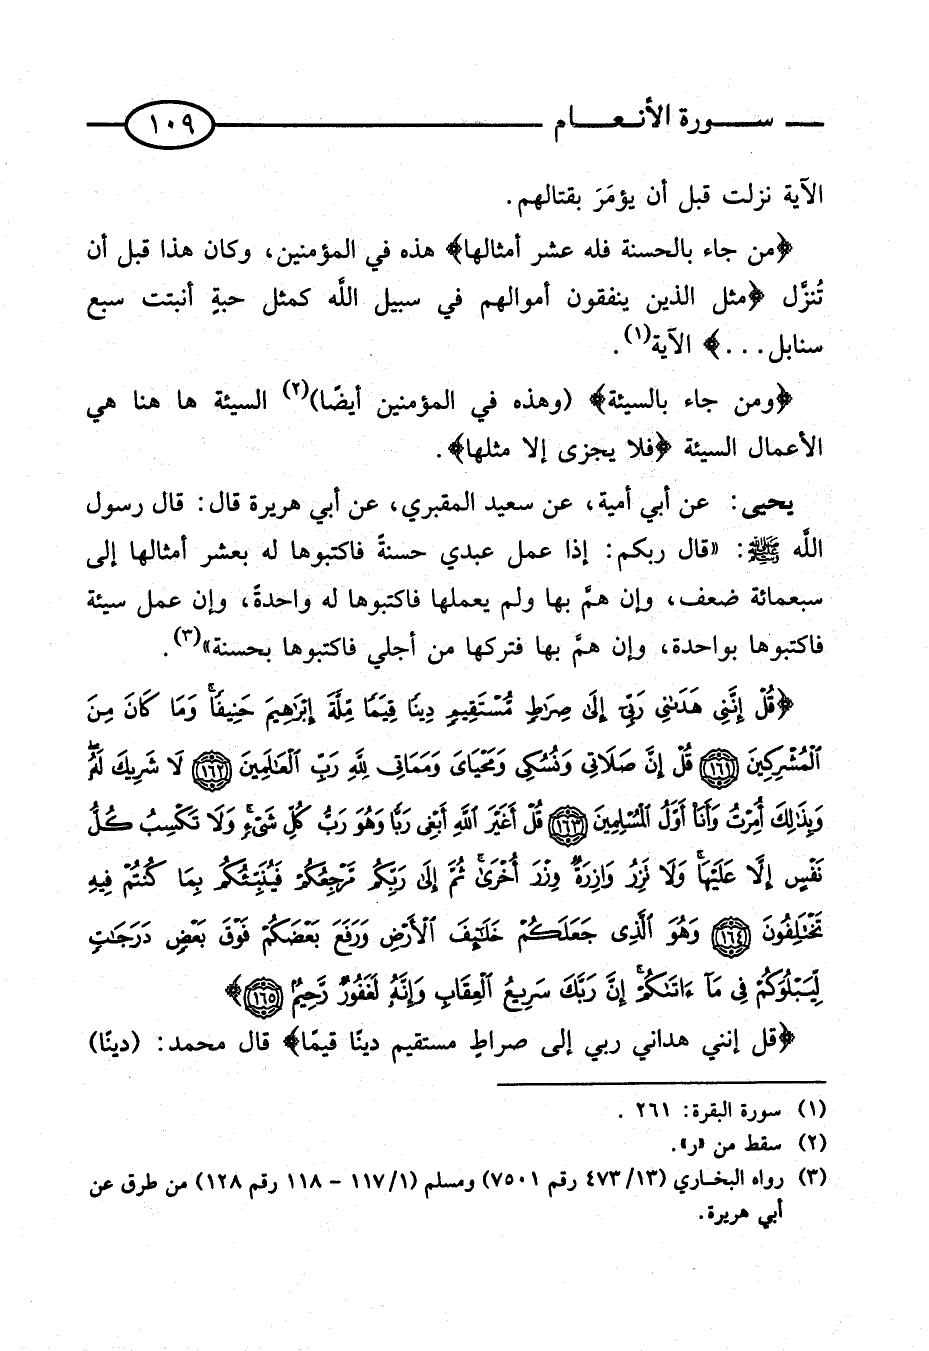 سـورة الأنـعـام ١٠٩
الآية نزلت قبل أن يؤمَرَ بقتالهم.
﴿من جاء بالحسنة فله عشر أمثالها﴾ هذه في المؤمنين، وكان هذا قبل أن
تُنزَّل ﴿مثل الذين ينفقون أموالهم في سبيل اللَّه كمثل حبةٍ أنبتت سبع
سنابل...﴾ الآية(١).
﴿ومن جاء بالسيئة﴾ (وهذه في المؤمنين أيضًا)(٢) السيئة ها هنا هي
الأعمال السيئة ﴿فلا يجزى إلا مثلها﴾.
يحيى: عن أبي أمية، عن سعيد المقبري، عن أبي هريرة قال: قال رسول
اللَّه ﷺ: «قال ربكم: إذا عمل عبدي حسنةً فاكتبوها له بعشر أمثالها إلى
سبعمائة ضعف، وإن همَّ بها ولم يعملها فاكتبوها له واحدةً، وإن عمل سيئة
فاكتبوها بواحدة، وإن همَّ بها فتركها من أجلي فاكتبوها بحسنة»(٣).
﴿قُلْ إِنَّنِي هَدَىٰنِي رَبِّيٓ إِلَىٰ صِرَٰطٍ مُّسْتَقِيمٍ دِينًا قِيَمًا مِّلَّةَ إِبْرَٰهِيمَ حَنِيفًا ۚ وَمَا كَانَ مِنَ
ٱلْمُشْرِكِينَ ١٦١ قُلْ إِنَّ صَلَاتِي وَنُسُكِي وَمَحْيَايَ وَمَمَاتِي لِلَّهِ رَبِّ ٱلْعَٰلَمِينَ ١٦٢ لَا شَرِيكَ لَهُۥ ۖ
وَبِذَٰلِكَ أُمِرْتُ وَأَنَا۠ أَوَّلُ ٱلْمُسْلِمِينَ ١٦٣ قُلْ أَغَيْرَ ٱللَّهِ أَبْغِي رَبًّا وَهُوَ رَبُّ كُلِّ شَيْءٍ ۚ وَلَا تَكْسِبُ كُلُّ
نَفْسٍ إِلَّا عَلَيْهَا ۚ وَلَا تَزِرُ وَازِرَةٌ وِزْرَ أُخْرَىٰ ۚ ثُمَّ إِلَىٰ رَبِّكُم مَّرْجِعُكُمْ فَيُنَبِّئُكُم بِمَا كُنتُمْ فِيهِ
تَخْتَلِفُونَ ١٦٤ وَهُوَ ٱلَّذِي جَعَلَكُمْ خَلَٰٓئِفَ ٱلْأَرْضِ وَرَفَعَ بَعْضَكُمْ فَوْقَ بَعْضٍ دَرَجَٰتٍ
لِّيَبْلُوَكُمْ فِي مَآ ءَاتَىٰكُمْ ۗ إِنَّ رَبَّكَ سَرِيعُ ٱلْعِقَابِ وَإِنَّهُۥ لَغَفُورٌ رَّحِيمٌ ١٦٥﴾
﴿قل إنني هداني ربي إلى صراطٍ مستقيم دينًا قيمًا﴾ قال محمد: (دينًا)
(١) سورة البقرة: ٢٦١ .
(٢) سقط من «ر».
(٣) رواه البخاري (١٣/ ٤٧٣ رقم ٧٥٠١) ومسلم (١/ ١١٧ - ١١٨ رقم ١٢٨) من طرق عن
أبي هريرة.